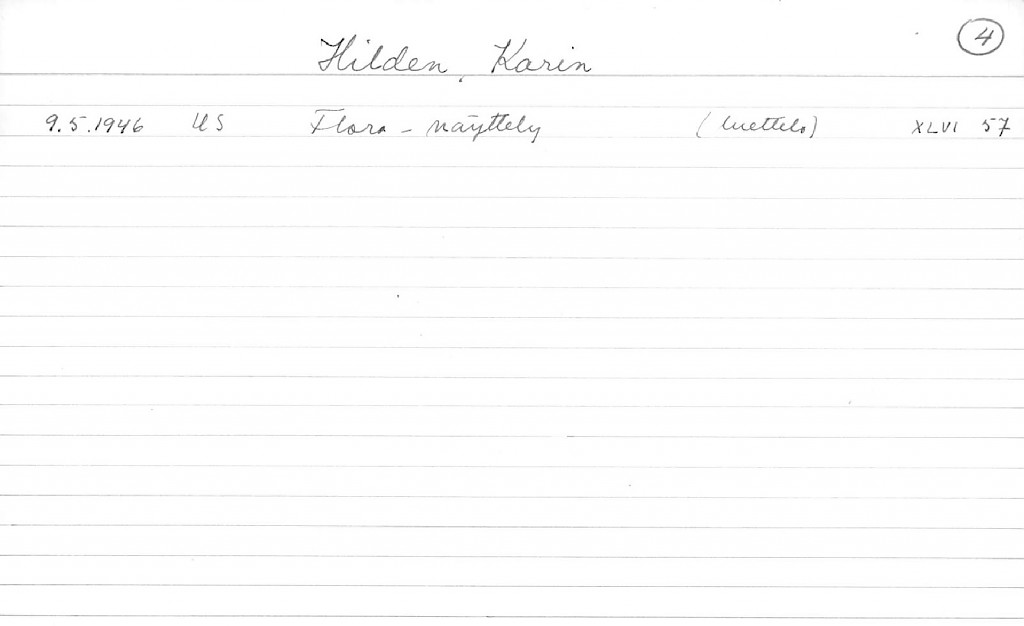 4
Hilden, Karin
9.5.1946 US Flora - näyttely (luettelo) XLVI 57